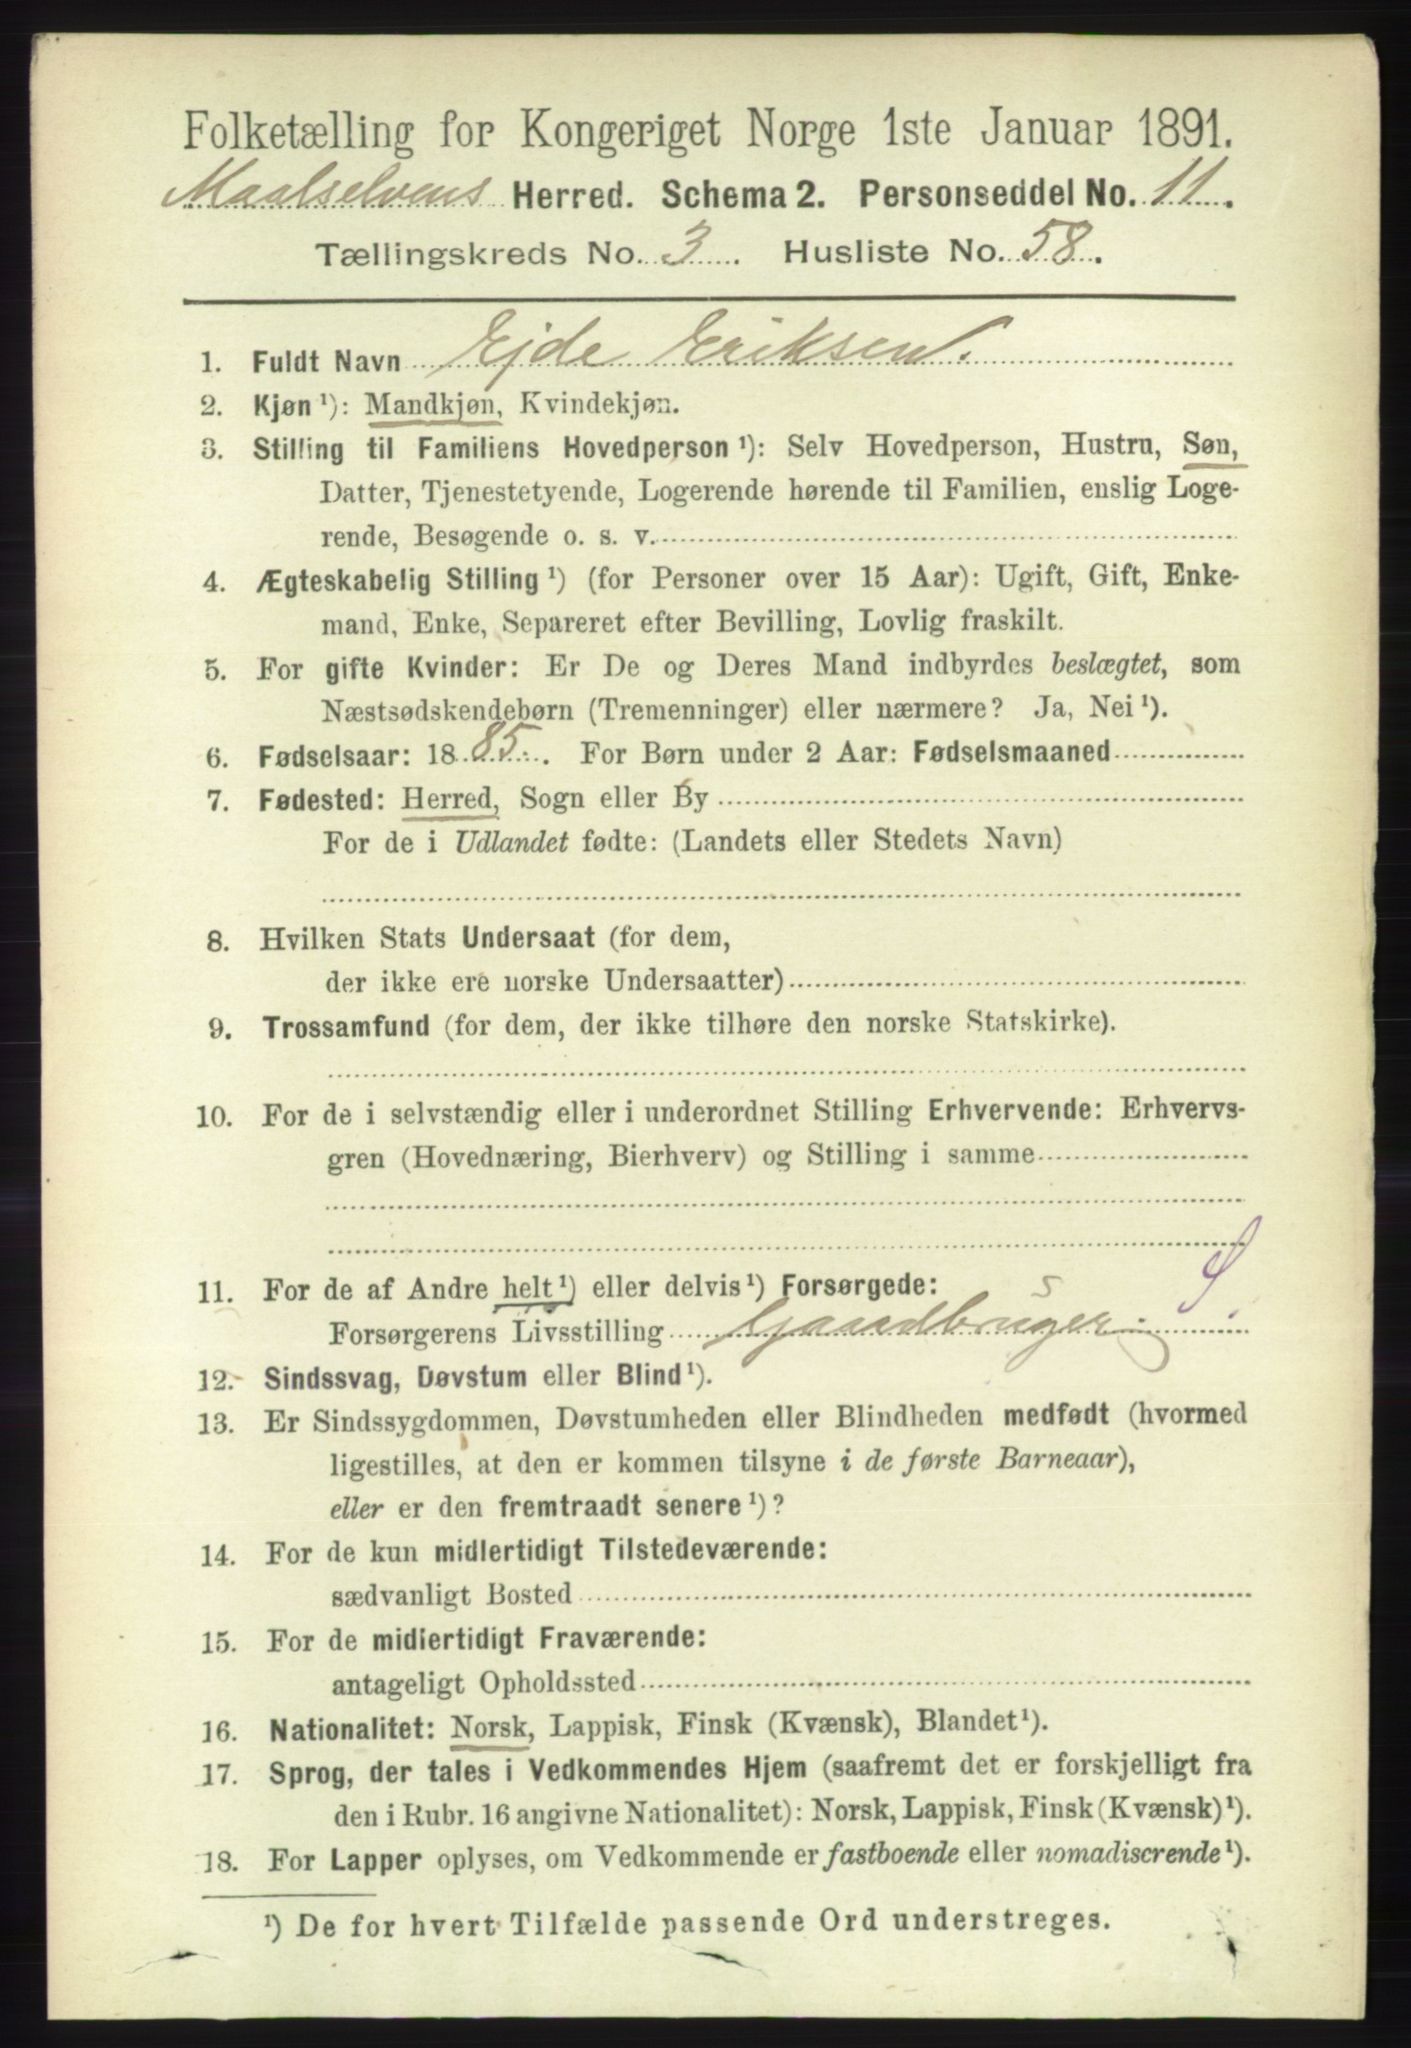 Folketælling for Kongeriget Norge 1ste Januar 1891.
Maalselvens Herred. Schema 2. Personseddel No. 11.
Tællingskreds No. 3. Husliste No. 58.
1. Fuldt Navn Ejde Eriksen.
2. Kjøn ¹): Mandkjøn, Kvindekjøn.
3. Stilling til Familiens Hovedperson ¹): Selv Hovedperson, Hustru, Søn,
Datter, Tjenestetyende, Logerende hørende til Familien, enslig Loge-
rende, Besøgende o. s. v.
4. Ægteskabelig Stilling ¹) (for Personer over 15 Aar): Ugift, Gift, Enke-
mand, Enke, Separeret efter Bevilling, Lovlig fraskilt.
5. For gifte Kvinder: Er De og Deres Mand indbyrdes beslægtet, som
Næstsødskendebørn (Tremenninger) eller nærmere? Ja, Nei ¹).
6. Fødselsaar: 1885. For Børn under 2 Aar: Fødselsmaaned
7. Fødested: Herred, Sogn eller By
For de i Udlandet fødte: (Landets eller Stedets Navn)
8. Hvilken Stats Undersaat (for dem,
der ikke ere norske Undersaatter)
9. Trossamfund (for dem, der ikke tilhøre den norske Statskirke).
10. For de i selvstændig eller i underordnet Stilling Erhvervende: Erhvervs-
gren (Hovednæring, Bierhverv) og Stilling i samme
11. For de af Andre helt ¹) eller delvis ¹) Forsørgede:
Forsørgerens Livsstilling Gaardbruger S.
12. Sindssvag, Døvstum eller Blind ¹).
13. Er Sindssygdommen, Døvstumheden eller Blindheden medfødt (hvormed
ligestilles, at den er kommen tilsyne i de første Barneaar),
eller er den fremtraadt senere ¹)?
14. For de kun midlertidigt Tilstedeværende:
sædvanligt Bosted
15. For de midlertidigt Fraværende:
antageligt Opholdssted
16. Nationalitet: Norsk, Lappisk, Finsk (Kvænsk), Blandet ¹).
17. Sprog, der tales i Vedkommendes Hjem (saafremt det er forskjelligt fra
den i Rubr. 16 angivne Nationalitet): Norsk, Lappisk, Finsk (Kvænsk) ¹).
18. For Lapper oplyses, om Vedkommende er fastboende eller nomadiserende ¹).
¹) De for hvert Tilfælde passende Ord understreges.